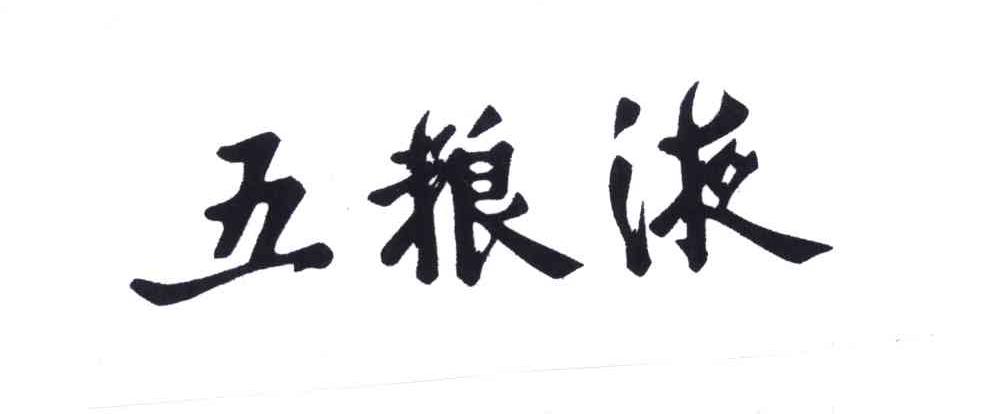 五粮液